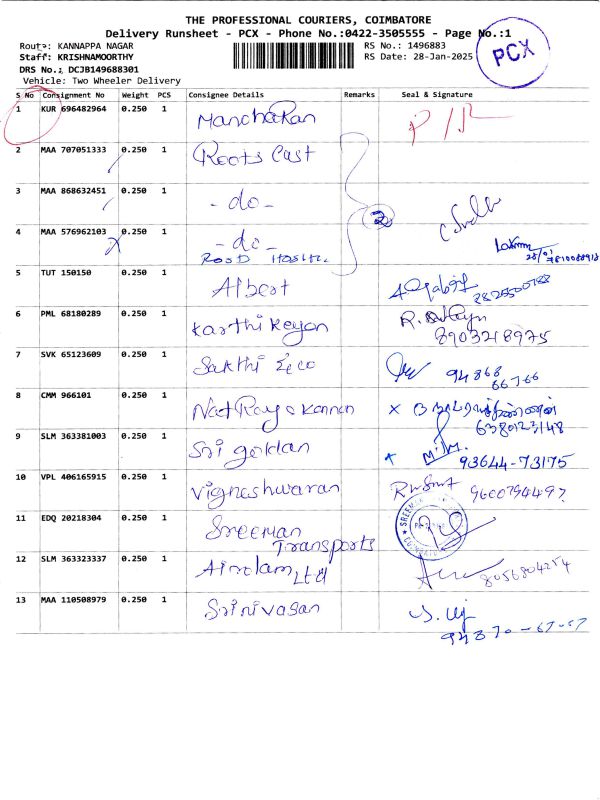 THE PROFESSIONAL COURIERS, COIMBATORE
Delivery Runsheet - PCX - Phone No.:0422-3505555 - Page No.:1
PCX
Route: KANNAPPA NAGAR RS No.: 1496883
Staff: KRISHNAMOORTHY RS Date: 28-Jan-2025
DRS No.: DCJB149688301
Vehicle: Two Wheeler Delivery
S No Consignment No Weight PCS Consignee Details Remarks Seal & Signature
1 KUR 696482964 0.250 1 Manoharan
2 MAA 707051333 0.250 1 Roots Cast
3 MAA 868632451 0.250 1 -do- 2
4 MAA 576962103 0.250 1 -do-
5 TUT 150150 0.250 1 Albert
6 PML 68180289 0.250 1 Karthikeyan 8903218975
7 SVK 65123609 0.250 1 Sakthi 94868
66766
8 CMM 966101 0.250 1 Natraj & Kannan 6380123148
9 SLM 363381003 0.250 1 Sri goldan 93644-73175
10 VPL 406165915 0.250 1 Vigneshwaran
11 EDQ 20218304 0.250 1 Sreeman
Transports
12 SLM 363323337 0.250 1 Airolam Ltd 8056804254
13 MAA 110508979 0.250 1 Srinivasan